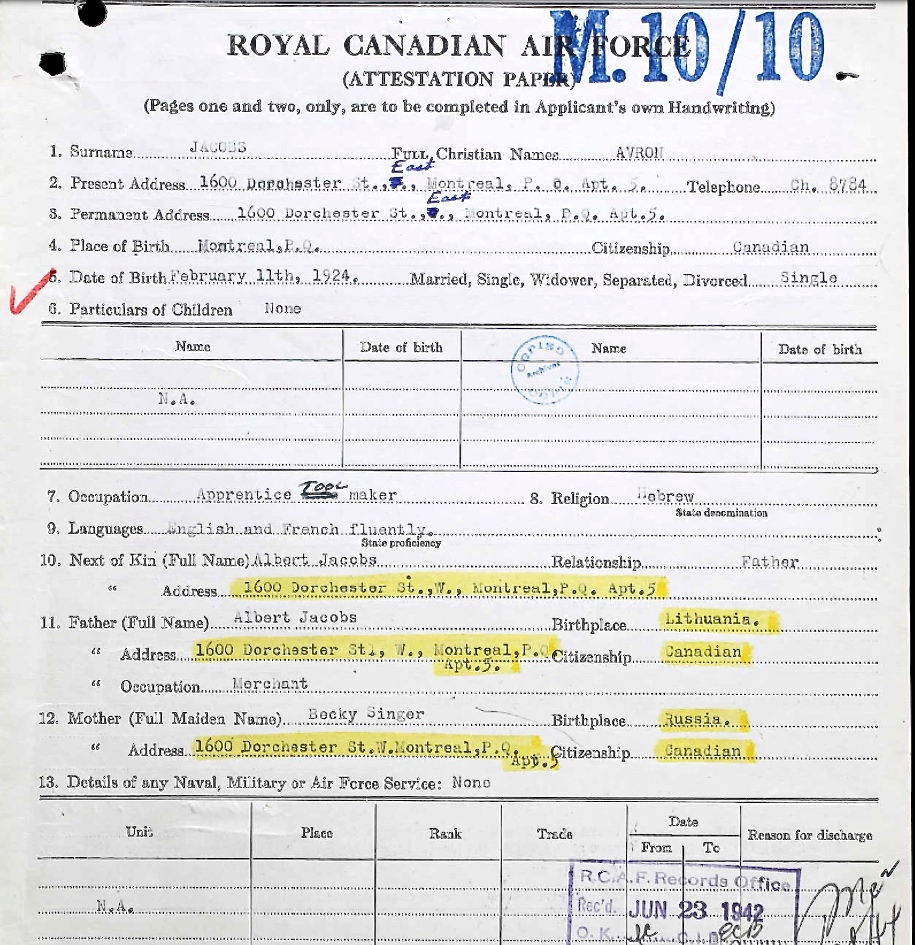 M.10/10
ROYAL CANADIAN AIR FORCE
(ATTESTATION PAPER)
(Pages one and two, only, are to be completed in Applicant's own Handwriting)
1. Surname JACOBS FULL Christian Names AVRON
East
2. Present Address 1600 Dorchester St., Montreal, P. Q. Apt. 5. Telephone Ch. 8784
East
3. Permanent Address 1600 Dorchester St., Montreal, P.Q. Apt.5.
4. Place of Birth Montreal,P.Q. Citizenship Canadian
5. Date of Birth February 11th, 1924. Married, Single, Widower, Separated, Divorced Single
6. Particulars of Children None
Name Date of birth Name Date of birth
COPIED
Archives
N.A.
7. Occupation Apprentice TOOL maker 8. Religion Hebrew
State denomination
9. Languages English and French fluently.
State proficiency
10. Next of Kin (Full Name) Albert Jacobs Relationship Father
" Address 1600 Dorchester St.,W., Montreal,P.Q. Apt.5
11. Father (Full Name) Albert Jacobs Birthplace Lithuania.
" Address 1600 Dorchester St1, W., Montreal,P.Q. Citizenship Canadian
Apt.5.
" Occupation Merchant
12. Mother (Full Maiden Name) Becky Singer Birthplace Russia.
" Address 1600 Dorchester St.W.Montreal,P.Q. Citizenship Canadian
Apt.5
13. Details of any Naval, Military or Air Force Service: None
Unit Place Rank Trade Date Reason for discharge
From To
R.C.A.F. Records Office
N.A. Rec'd. JUN 23 1942
O. K.